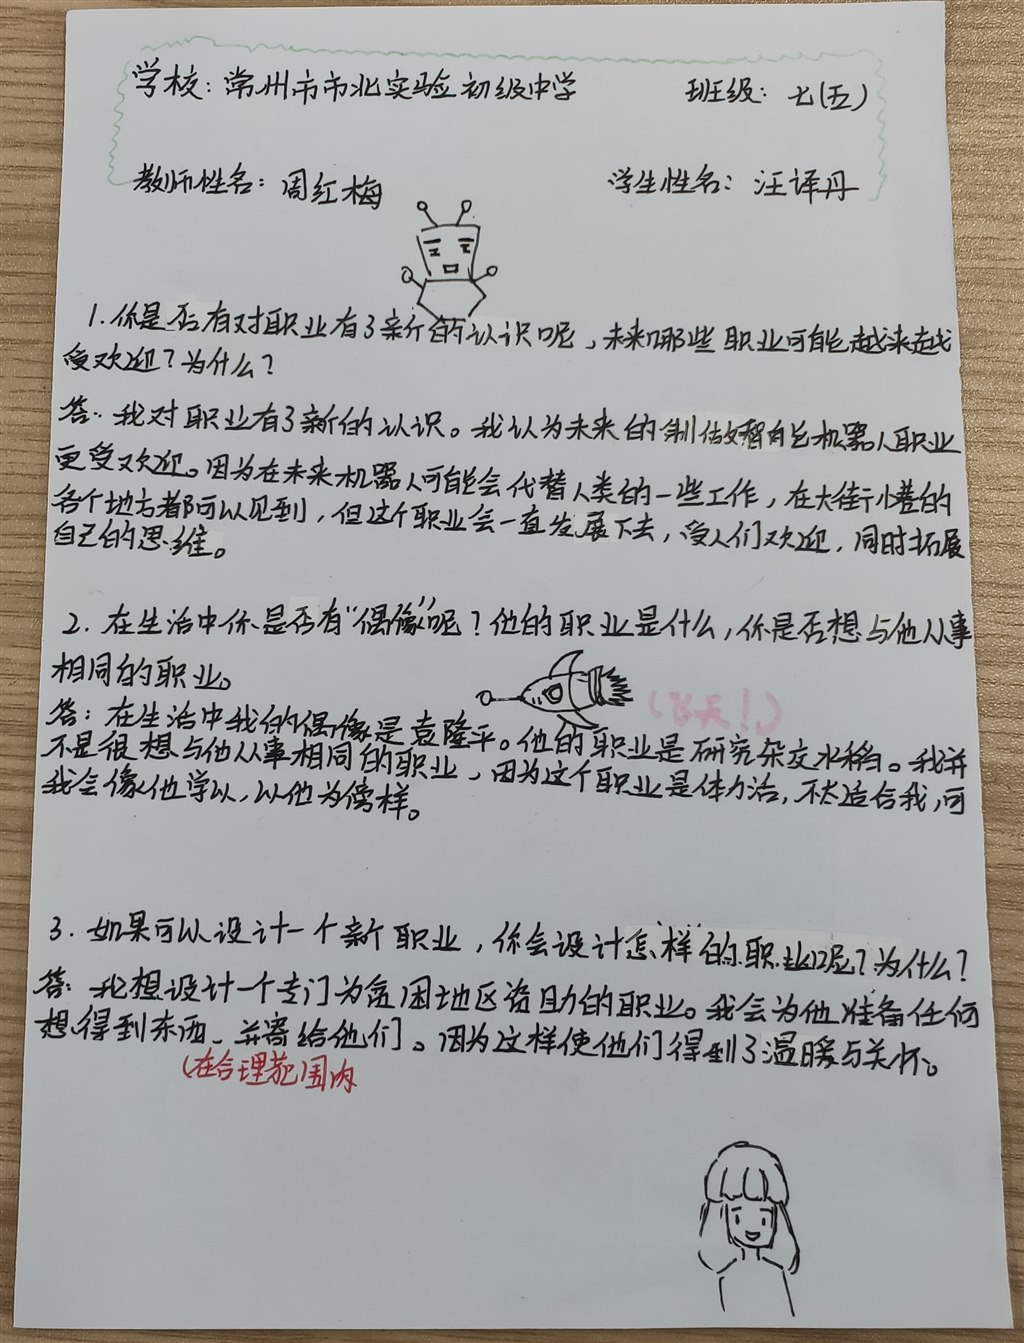 学校：常州市市北实验初级中学 班级：七(五)
教师性名：周红梅 学生性名：汪译丹
1.你是否有对职业有了新的认识呢，未来哪些职业可能越来越
受欢迎？为什么？
答：我对职业有了新的认识。我认为未来的制做智能机器人职业
更受欢迎。因为在未来机器人可能会代替人类的一些工作，在大街小巷的
各个地方都可以见到，但这个职业会一直发展下去，受人们欢迎，同时拓展
自己的思维。
2.在生活中你是否有“偶像”呢？他的职业是什么，你是否想与他从事
相同的职业。
(飞天！)
答：在生活中我的偶像是袁隆平。他的职业是研究杂交水稻。我并
不是很想与他从事相同的职业，因为这个职业是体力活，不太适合我，可
我会像他学以，以他为傍样。
3.如果可以设计一个新职业，你会设计怎样的职业呢？为什么？
答：我想设计一个专门为贫困地区资助的职业。我会为他准备任何
想得到东西、并寄给他们。因为这样使他们得到了温暖与关怀。
(在合理范围内